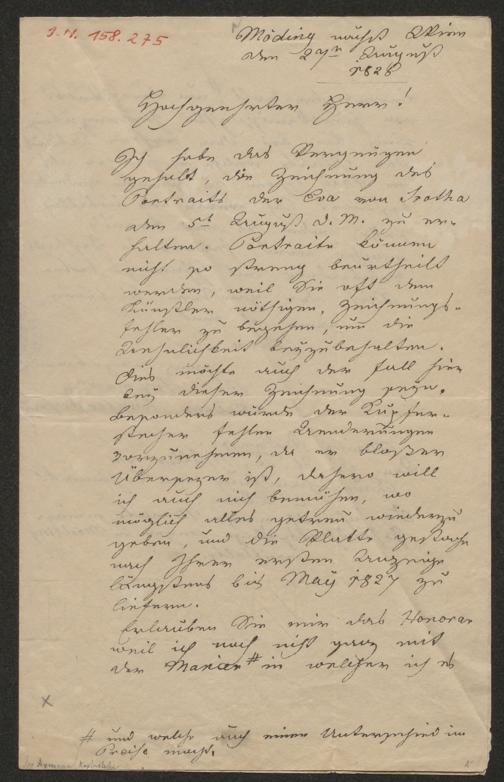 I.N. 158.275
Mödling nächst Wien
den 27n August
1826
Hochgeehrter Herr!
Ich habe das Vergnügen
gehabt, die Zeichnung des
Portraits der Eva von Trotha
den 5t August d. M. zu er-
halten. Portraite können
nicht so streng beurtheilt
werden, weil Sie oft den
Künstler nöthigen, Zeichnungs-
fehler zu begehen, um die
Aehnlichkeit beyzubehalten.
Dies möchte auch der Fall hier
bey dieser Zeichnung seyn.
Besonders würde der Kupfer-
stecher fehlen Aenderungen
vorzunehmen, da er bloßer
Übersezer ist, dahero will
ich auch mich bemühen, wo
möglich alles getreu wiederzu
geben, und die Platte gestochen
nach Ihrer ersten Anzeige
längstens bis May 1827 zu
liefern.
Erlauben Sie mir das Honorar
weil ich noch nicht ganz mit
der Manier # in welcher ich es
# und welche auch einen Unterschied im
Preise macht,